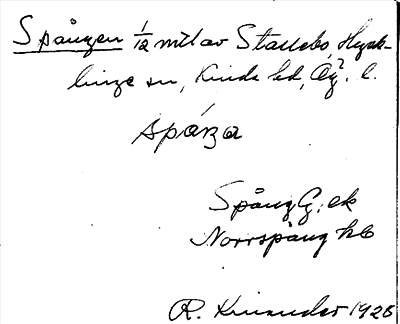 Spången 1/12 mil av Stallebo, Hyck-
linge sn, Kinda hd, Ög. l.
spáŋa
Spång G. ek
Norrspång hb
R. 1928